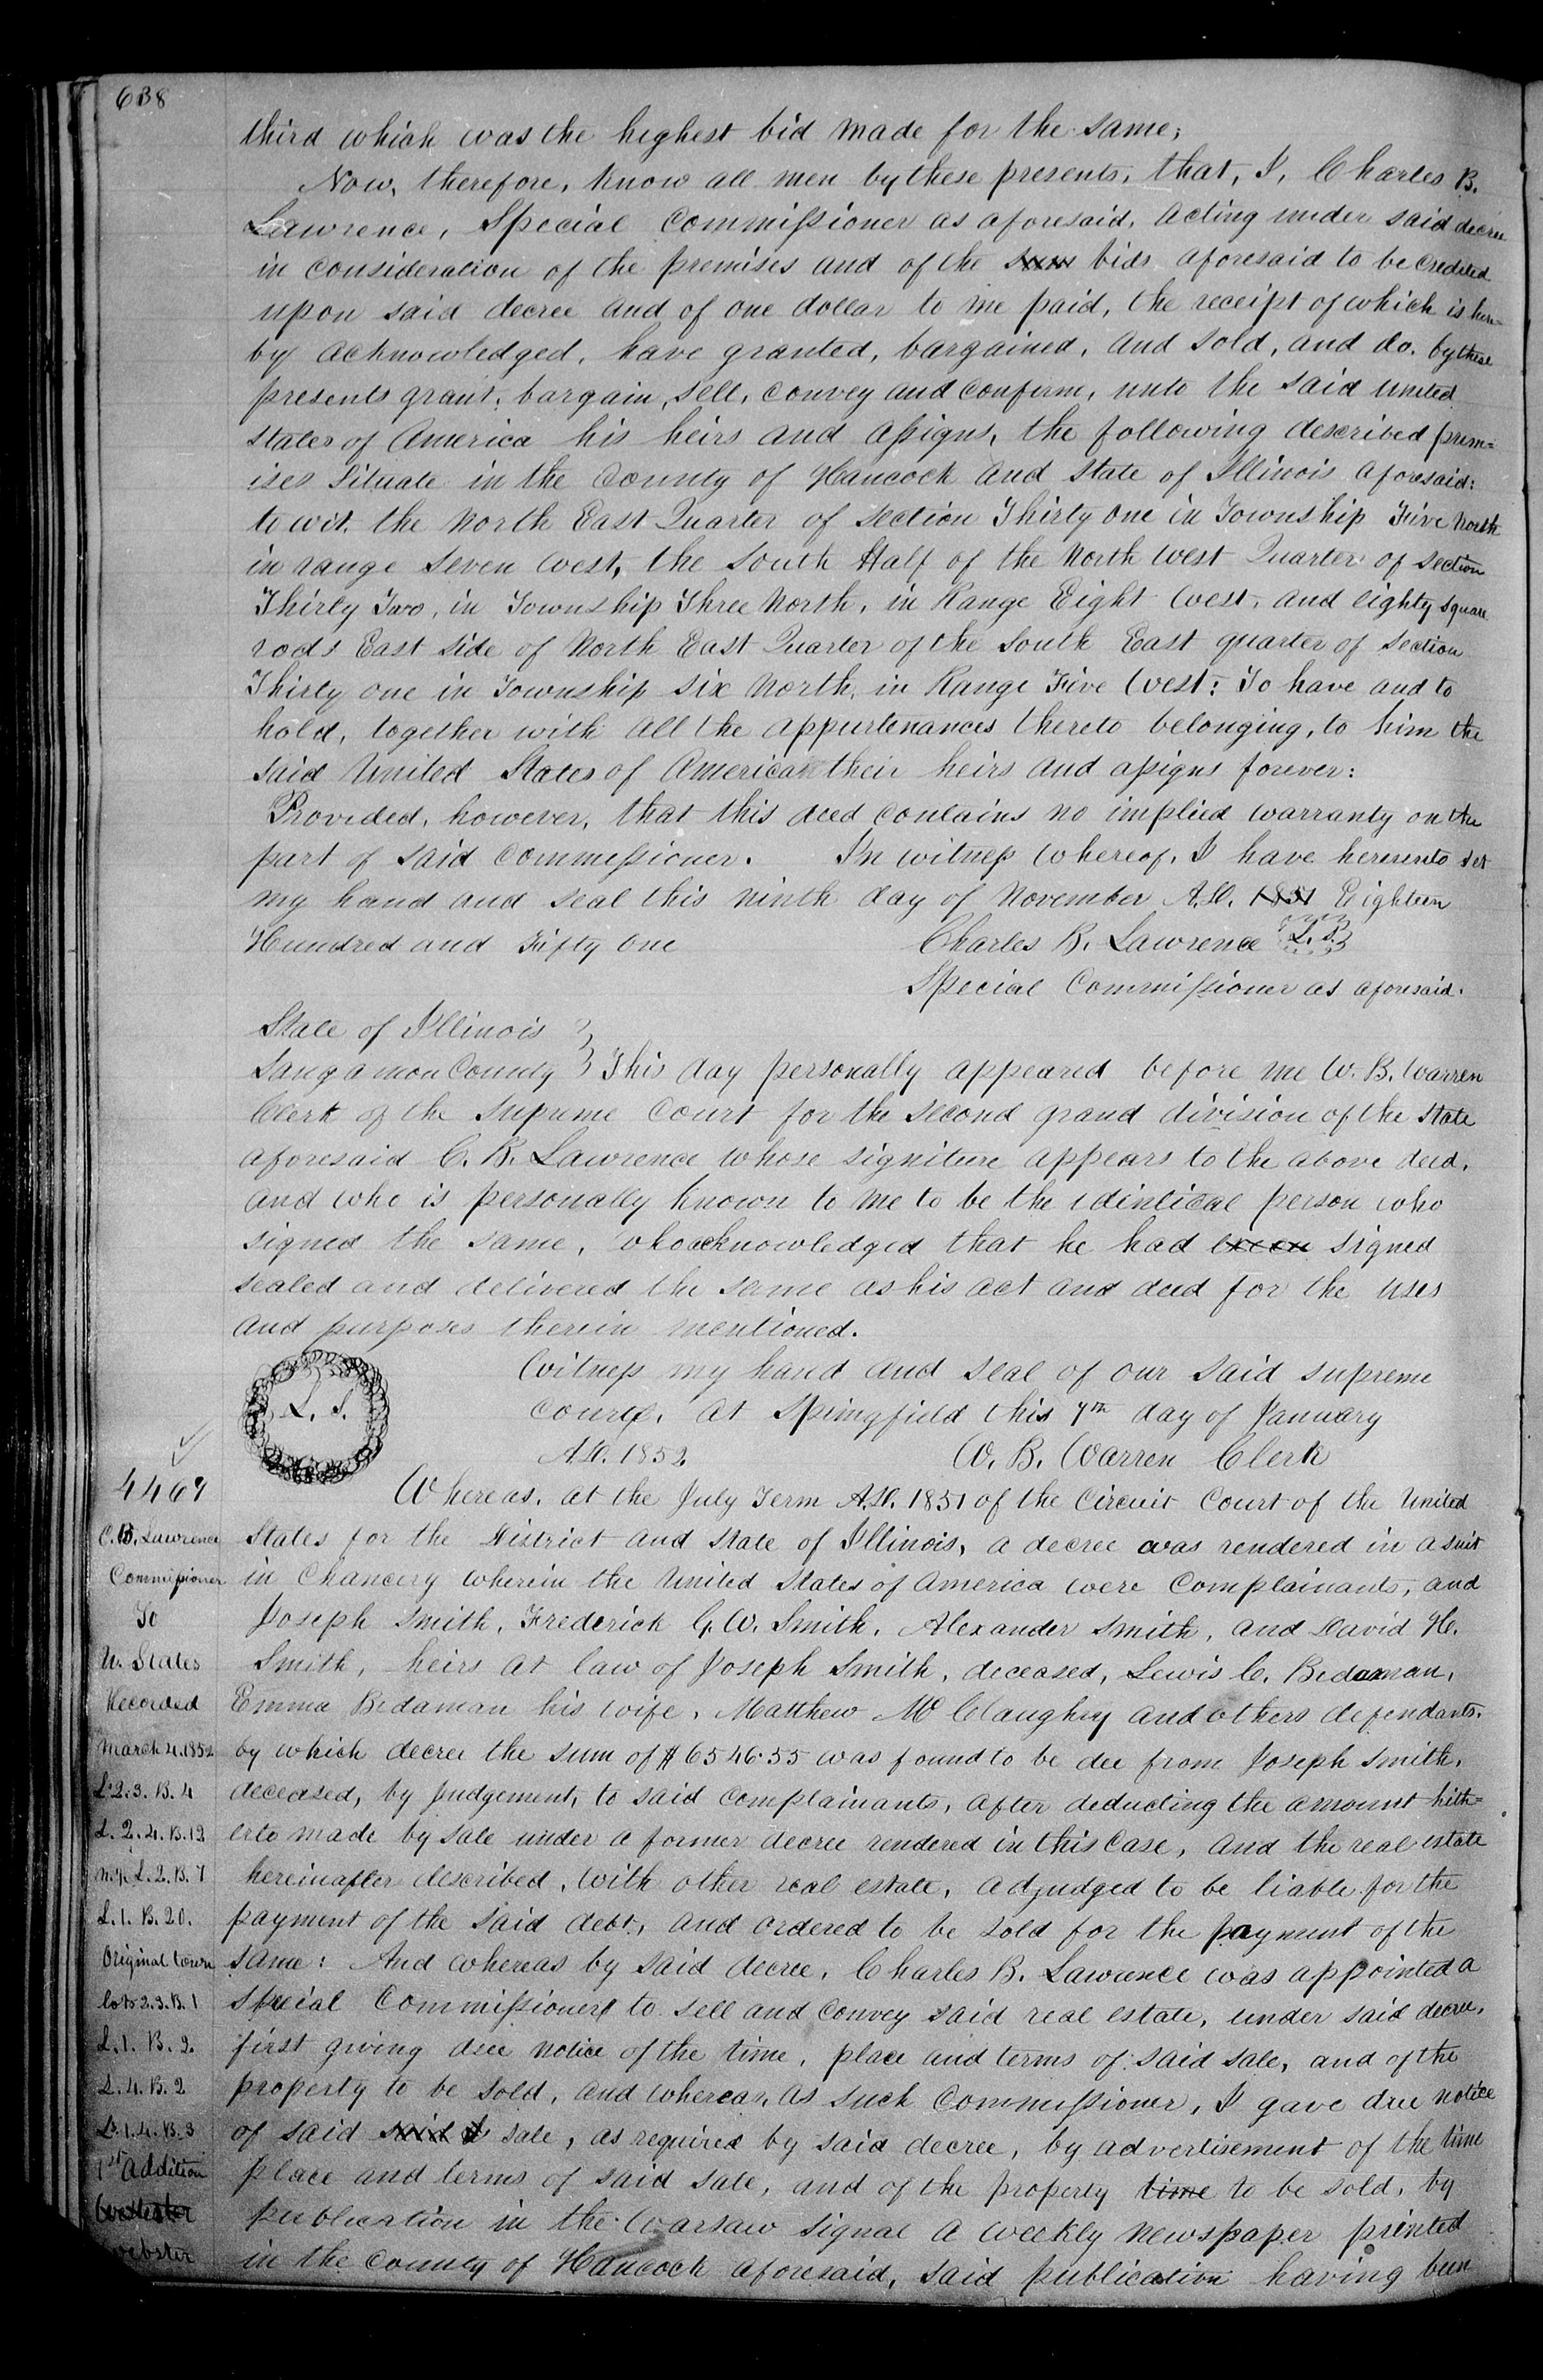 638
third which was the highest bid made for the same;
Now, therefore, know all men by these presents, that, I, Charles B.
Lawrence, Special Commissioner as aforesaid, acting under said decree
in consideration of the premises and of the bids aforesaid to be credited
upon said decree and of one dollar to me paid, the receipt of which is here=
by acknowledged, have granted, bargained, and sold, and do, by these
presents grant, bargain, sell, convey and confirm, unto the said united
states of America his heirs and assigns, the following described prem=
ises situate in the County of Hancock and State of Illinois aforesaid:
to wit, the North East Quarter of section Thirty one in Township Five North
in range seven west, the South Half of the North west Quarter of section
Thirty Two, in Township Three North, in Range Eight West, and eighty square
rods East side of North East Quarter of the South East quarter of section
Thirty one in Township six North, in Range Five West: To have and to
hold, together with all the appurtenances thereto belonging, to him the
said United States of America their heirs and assigns forever:
Provided, however, that this deed contains no implied warranty on the
part of said Commissioner. In witness whereof, I have hereunto set
my hand and seal this ninth day of November A.D. 1851 Eighteen
Hundred and Fifty One Charles B. Lawrence L.S.
Special Commissioner as aforesaid.
State of Illinois
Sangamon County } This day personally appeared before me W. B. Warren
Clerk of the Supreme Court for the second grand division of the state
aforesaid C. B. Lawrence whose signiture appears to the above deed,
and who is personally known to me to be the identical person who
signed the same, who acknowledged that he had signed
sealed and delivered the same as his act and deed for the uses
and purposes therein mentioned.
Witness my hand and seal of our said supreme
L. S. Court, at Springfield this 7th day of January
A.D. 1852 W. B. Warren Clerk
4467
Whereas, at the July Term A.D. 1851 of the Circuit Court of the United
States for the District and State of Illinois, a decree was rendered in a suit
in Chancery wherein the United States of America were Complainants, and
Joseph Smith, Frederick G. W. Smith, Alexander Smith, and David H.
Smith, heirs at law of Joseph Smith, deceased, Lewis C. Bidaman,
Emma Bidaman his wife, Matthew McClaughry and others defendants,
by which decree the sum of $6546.55 was found to be due from Joseph Smith,
deceased, by judgement, to said complainants, after deducting the amount hith=
erto made by sale under a former decree rendered in this case, and the real estate
hereinafter described, with other real estate, adjudged to be liable for the
payment of the said debt, and ordered to be sold for the payment of the
same: And whereas by said decree, Charles B. Lawrence was appointed a
special Commissioner to sell and convey said real estate, under said decree,
first giving due notice of the time, place and terms of said sale, and of the
property to be sold, and whereas, as such Commissioner, I gave due notice
of said said sale, as required by said decree, by advertisement of the time
place and terms of said sale, and of the property time to be sold, by
publication in the Warsaw Signal a weekly newspaper printed
in the County of Hancock aforesaid, said publication having been
C. B. Lawrence
Commissioner
To
U. States
Recorded
March 4. 1852
L. 2. 3. B. 4
L. 2. 4. B. 12
L. 2. B. 7
L. 1. B. 20.
Original town
lots 2. 3. B. 1
L. 1. B. 2.
L. 4. B. 2
L. 1. 4. B. 3
1st Addition
Webster